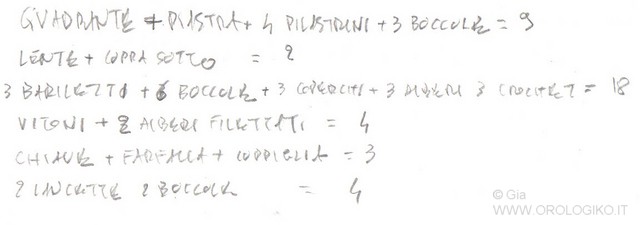 QUADRANTE + PIASTRA + 4 PILASTRINI + 3 BOCCOLE = 9
LENTE + COPPA SOTTO = 2
3 BARILETTI + 6 BOCCOLE + 3 COPERCHI + 3 ALBERI 3 CROCI = 18
VITONI + 2 ALBERI FILETTATI = 4
CHIAVE + FARFALLA + COPPIGLIA = 3
2 LANCETTE 2 BOCCOLE = 4
© Gia
WWW.OROLOGIKO.IT